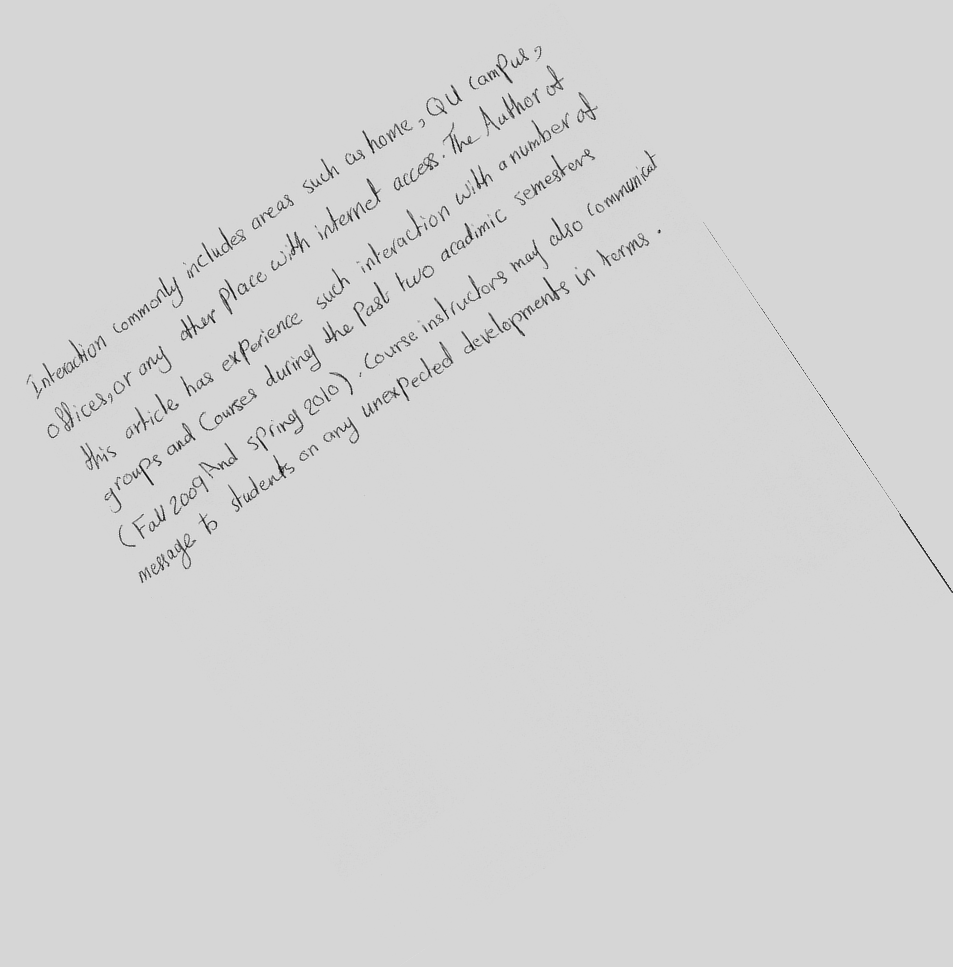 Interaction commonly includes areas such as home, QU campus,
offices, or any other place with internet access. The Author of
this article has experience such interaction with a number of
groups and Courses during the Past two acadimic semesters
(Fall 2009 And spring 2010). Course instructors may also communicat
message to students on any unexpected developments in terms.